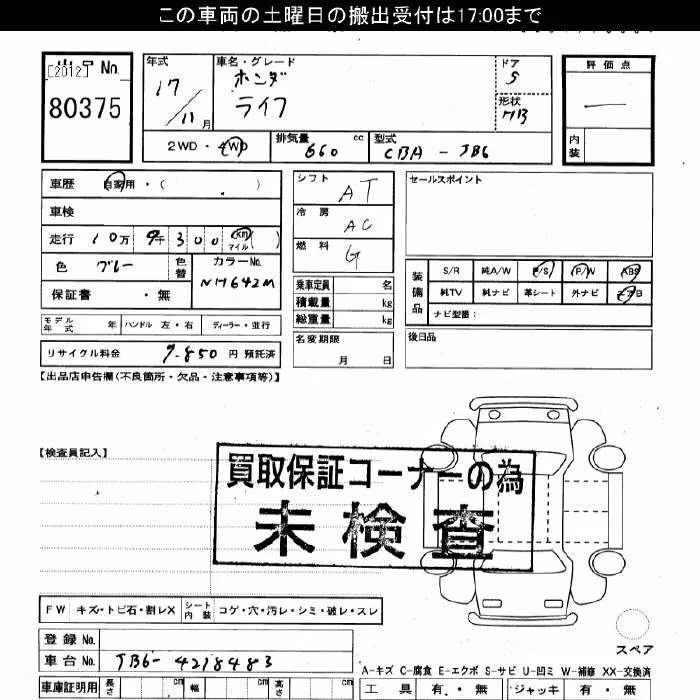 この車両の土曜日の搬出受付は17:00まで
出品 No.
[2012]
80375
年式
17/11月
車名・グレード
ホンダ
ライフ
ドア
5
形状
HB
評価点
—
内装
2WD・4WD
排気量
660 cc
型式
CBA - JB6
車歴 自家用・( )
車検
走行 10万 9千 300 km マイル ( )
色 ブルー
色替
カラーNo.
NH642M
保証書 ・無
シフト
AT
冷房
AC
燃料
G
乗車定員 名
積載量 kg
総重量 kg
名変期限
月 日
セールスポイント
装備品
S/R 純A/W P/S P/W ABS
純TV 純ナビ 革シート 外ナビ エアB
ナビ型番:
後日品
モデル年式 年 ハンドル 左・右 ディーラー・並行
リサイクル料金 7.850 円 預託済
【出品店申告欄(不良箇所・欠品・注意事項等)】
【検査員記入】
買取保証コーナーの為
未検査
FW キズ・トビ石・割レX シート内装 コゲ・穴・汚レ・シミ・破レ・スレ
登録 No.
車台 No. JB6-4218483
スペア
A-キズ C-腐食 E-エクボ S-サビ U-凹ミ W-補修 XX-交換済
車庫証明用 長さ cm 幅 cm 高さ cm
工具 有・無 ジャッキ 有・無